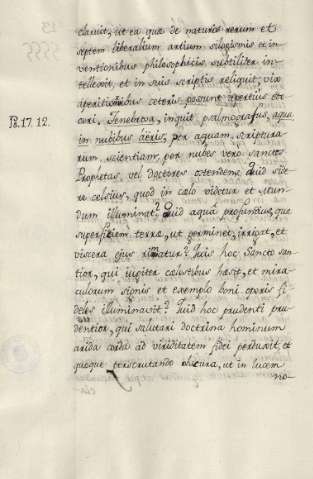 claruit, ut ea quæ de naturis rerum et
septem liberalium artium silogismis et in
ventionibus philosophicis subtiliter in-
tellexit, et in suis scriptis reliquit, vix
ceteris possunt apertius
Tenebrosa, inquit psalmografus, aqua
Ps. 17. 12.
in nubibus aëris; per aquam, scriptura
rum scientiam, per nubes vero sanctos
Prophetas, vel doctores ostendens. Quid side
re celsius, quod in cælo videtur et mun-
dum illuminat? Quid aqua profundius, quæ
superficiem terræ, ut germinet, irrigat, et
viscera ejus rimatur? Quis hoc Sancto san-
tior, qui jugiter cœlestibus hæsit, et mira-
culorum signis et exemplo boni operis fi-
deles illuminavit? Quid hoc prudenti pru
dentior, qui salutari doctrina hominum
arida corda ad viriditatem fidei perduxit, et
quæque perscrutando obscura, ut in lucem